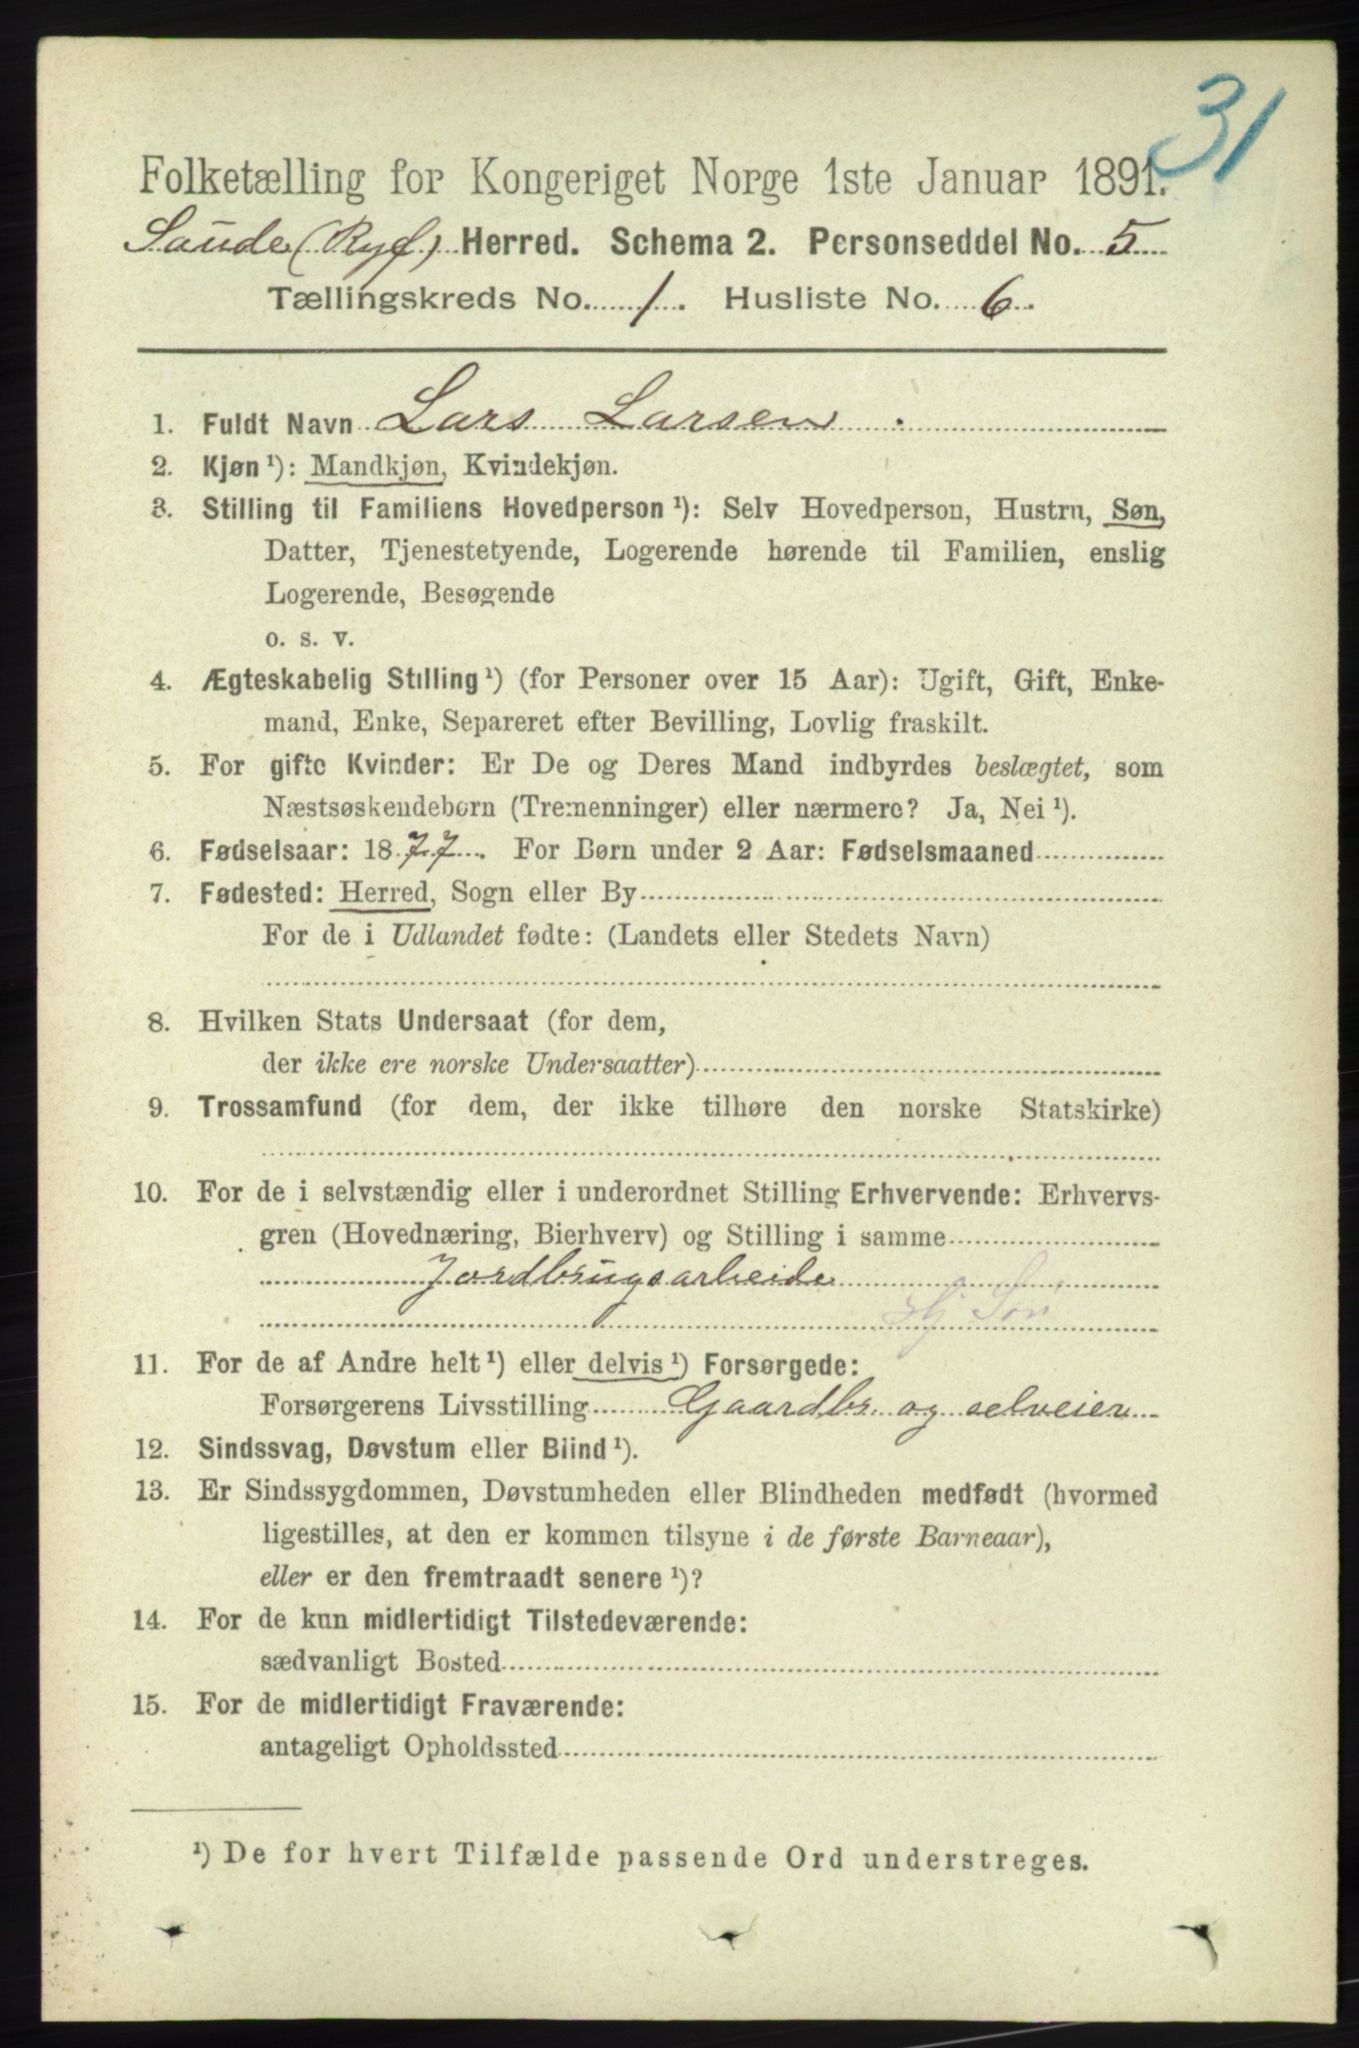 31
Folketælling for Kongeriget Norge 1ste Januar 1891.
Saude (Ryf) Herred. Schema 2. Personseddel No. 5
Tællingskreds No. 1. Husliste No. 6.
1. Fuldt Navn Lars Larsen
2. Kjøn ¹): Mandkjøn, Kvindekjøn.
3. Stilling til Familiens Hovedperson ¹): Selv Hovedperson, Hustru, Søn,
Datter, Tjenestetyende, Logerende hørende til Familien, enslig
Logerende, Besøgende
o. s. v.
4. Ægteskabelig Stilling ¹) (for Personer over 15 Aar): Ugift, Gift, Enke-
mand, Enke, Separeret efter Bevilling, Lovlig fraskilt.
5. For gifte Kvinder: Er De og Deres Mand indbyrdes beslægtet, som
Næstsøskendebørn (Tremenninger) eller nærmere? Ja, Nei ¹).
6. Fødselsaar: 1877. For Børn under 2 Aar: Fødselsmaaned
7. Fødested: Herred, Sogn eller By
For de i Udlandet fødte: (Landets eller Stedets Navn)
8. Hvilken Stats Undersaat (for dem,
der ikke ere norske Undersaatter)
9. Trossamfund (for dem, der ikke tilhøre den norske Statskirke)
10. For de i selvstændig eller i underordnet Stilling Erhvervende: Erhvervs-
gren (Hovednæring, Bierhverv) og Stilling i samme
Jordbrugsarbeide
Søn
11. For de af Andre helt ¹) eller delvis ¹) Forsørgede:
Forsørgerens Livsstilling Gaardbr. og selveier
12. Sindssvag, Døvstum eller Blind ¹).
13. Er Sindssygdommen, Døvstumheden eller Blindheden medfødt (hvormed
ligestilles, at den er kommen tilsyne i de første Barneaar),
eller er den fremtraadt senere ¹)?
14. For de kun midlertidigt Tilstedeværende:
sædvanligt Bosted
15. For de midlertidigt Fraværende:
antageligt Opholdssted
¹) De for hvert Tilfælde passende Ord understreges.